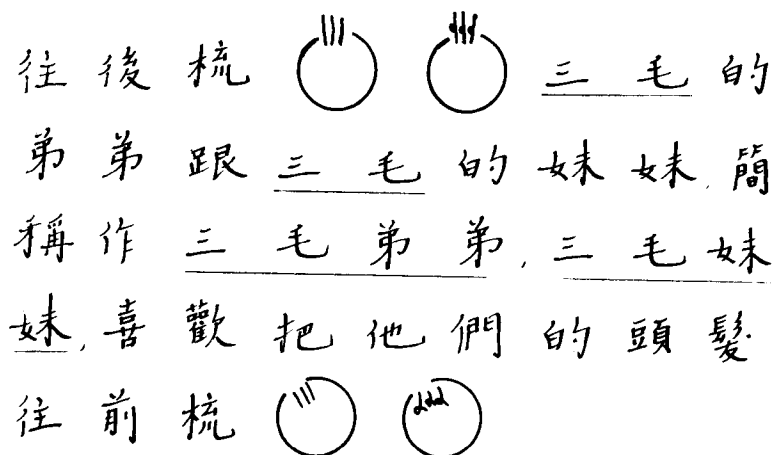 往後梳 三毛的
弟弟跟三毛的妹妹,簡
稱作三毛弟弟,三毛妹
妹,喜歡把他們的頭髮
往前梳